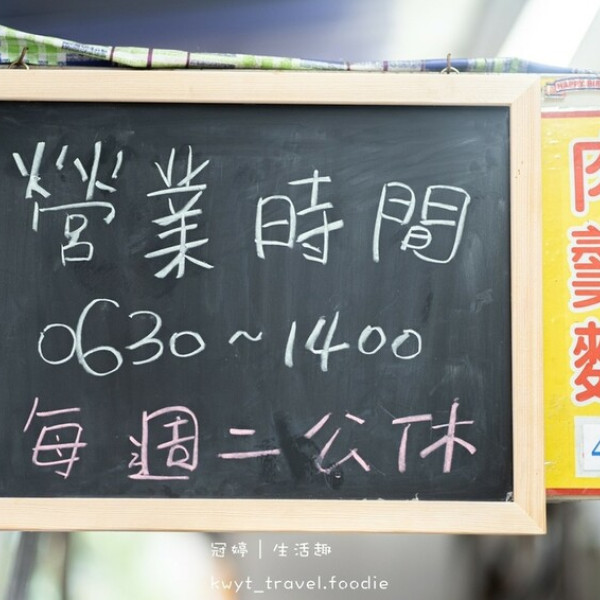 營業時間
0630~1400
每週二公休
肉羹麵
冠婷｜生活趣
kwyt_travel.foodie